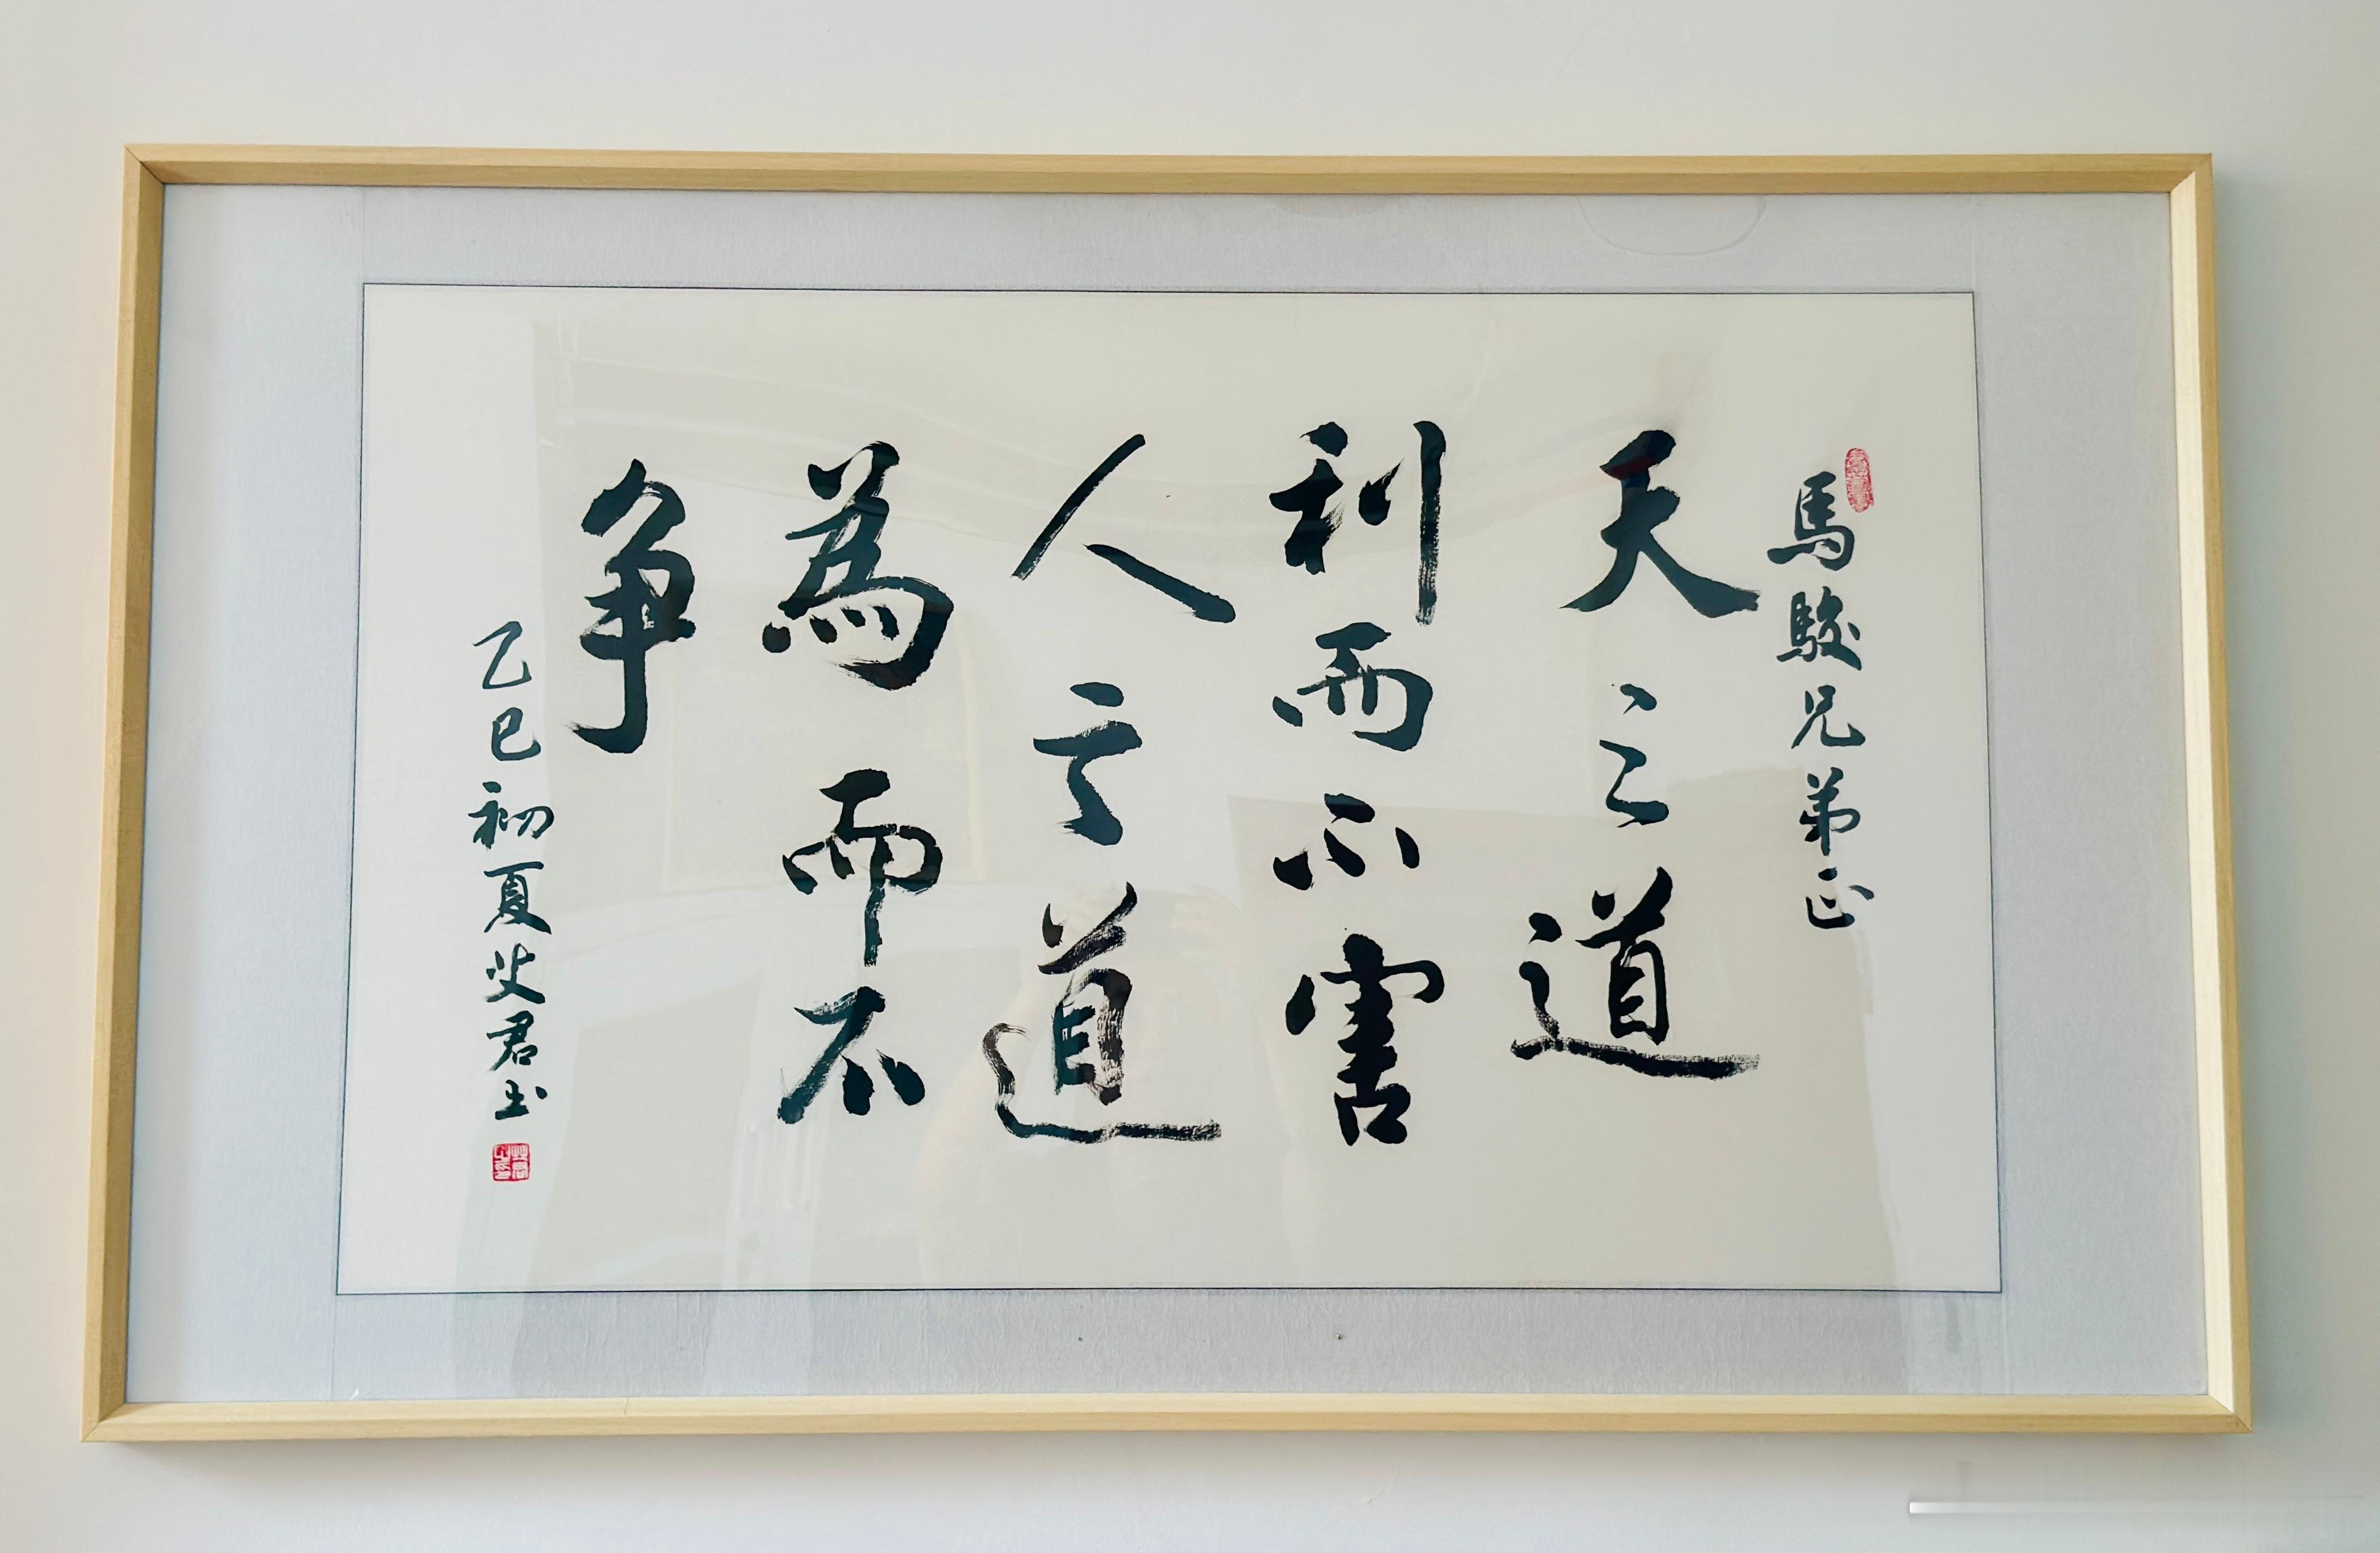 馬駿兄弟正
天之道
利而不害
人之道
為而不
争
乙巳初夏
君书